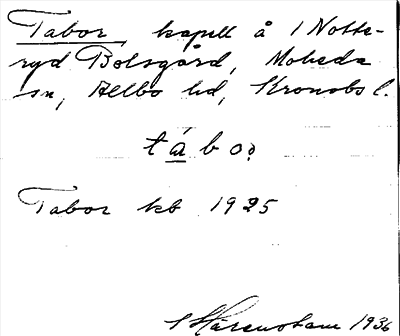 Tabor, kapell å 1 Notte-
ryd Bolsgård, Moheda
sn, Allbo hd, Kronobs l.
tábor
Tabor kb 1925
S Härenstam 1936